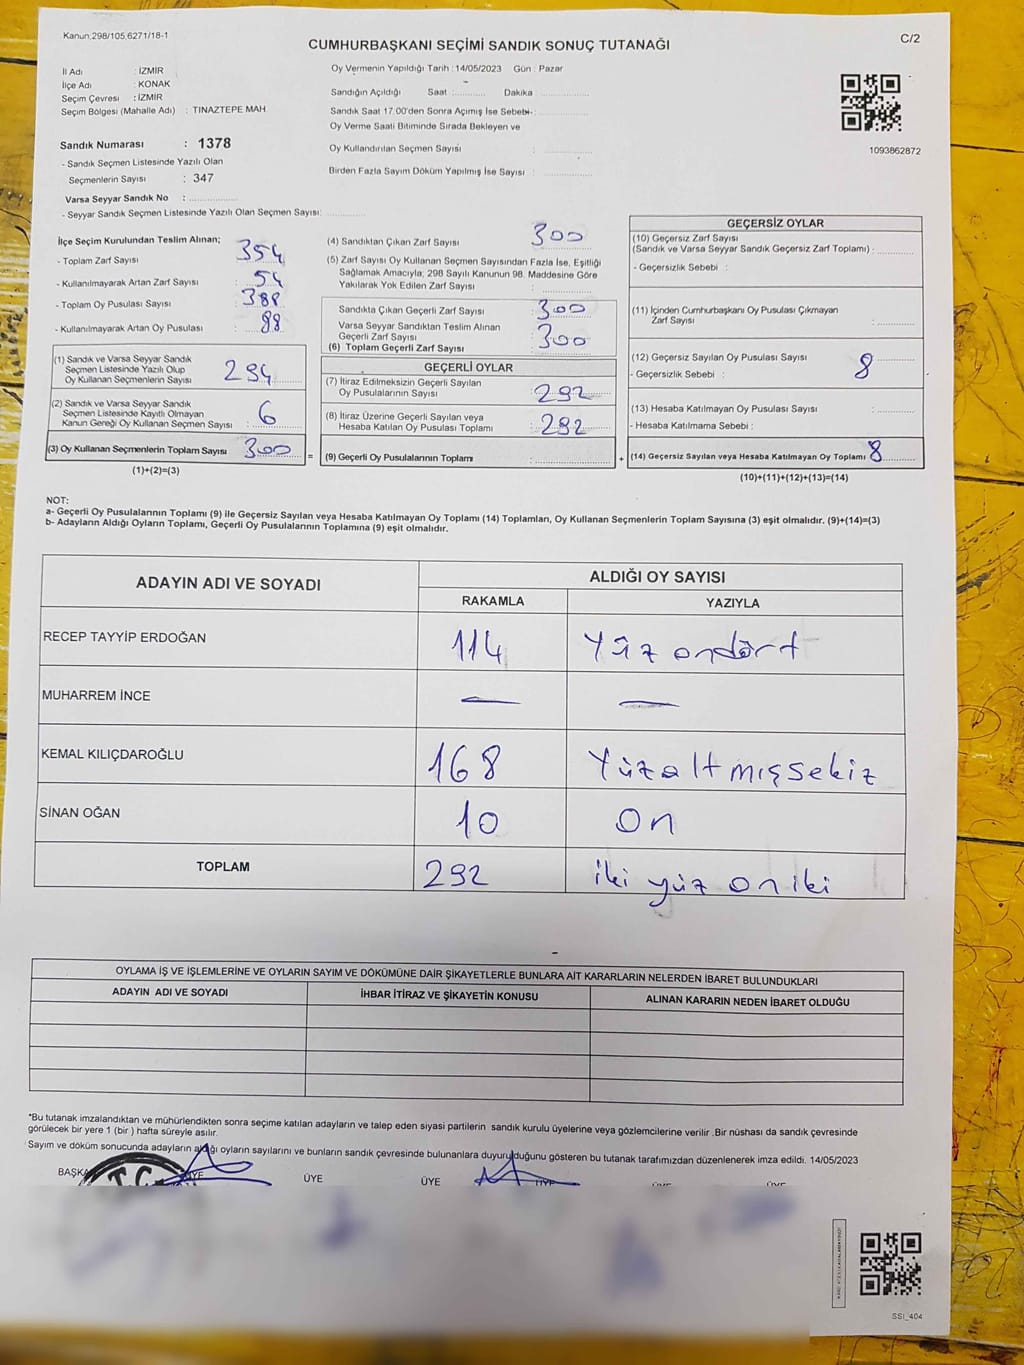 Kanun.298/105,6271/18-1
C/2
CUMHURBAŞKANI SEÇİMİ SANDIK SONUÇ TUTANAĞI
İl Adı : İZMİR
İlçe Adı : KONAK
Seçim Çevresi : İZMİR
Seçim Bölgesi (Mahalle Adı) : TINAZTEPE MAH.
Oy Vermenin Yapıldığı Tarih :14/05/2023 Gün : Pazar
Sandığın Açıldığı Saat :............ Dakika ................
Sandık Saat 17.00'den Sonra Açımış İse Sebebi- :
Oy Verme Saati Bitiminde Sırada Bekleyen ve
Oy Kullandırılan Seçmen Sayısı :
Birden Fazla Sayım Döküm Yapılmış İse Sayısı :
1093862872
Sandık Numarası : 1378
- Sandık Seçmen Listesinde Yazılı Olan
Seçmenlerin Sayısı : 347
Varsa Seyyar Sandık No :
- Seyyar Sandık Seçmen Listesinde Yazılı Olan Seçmen Sayısı:
İlçe Seçim Kurulundan Teslim Alınan;
- Toplam Zarf Sayısı : 354
- Kullanılmayarak Artan Zarf Sayısı : 54
- Toplam Oy Pusulası Sayısı : 388
- Kullanılmayarak Artan Oy Pusulası : 88
(1) Sandık ve Varsa Seyyar Sandık
Seçmen Listesinde Yazılı Olup
Oy Kullanan Seçmenlerin Sayısı : 294
(2) Sandık ve Varsa Seyyar Sandık
Seçmen Listesinde Kayıtlı Olmayan
Kanun Gereği Oy Kullanan Seçmen Sayısı : 6
(3) Oy Kullanan Seçmenlerin Toplam Sayısı : 300
(1)+(2)=(3)
(4) Sandıktan Çıkan Zarf Sayısı : 300
(5) Zarf Sayısı Oy Kullanan Seçmen Sayısından Fazla İse, Eşitliği
Sağlamak Amacıyla; 298 Sayılı Kanunun 98. Maddesine Göre
Yakılarak Yok Edilen Zarf Sayısı :
Sandıkta Çıkan Geçerli Zarf Sayısı : 300
Varsa Seyyar Sandıktan Teslim Alınan
Geçerli Zarf Sayısı :
(6) Toplam Geçerli Zarf Sayısı : 300
GEÇERLİ OYLAR
(7) İtiraz Edilmeksizin Geçerli Sayılan
Oy Pusulalarının Sayısı : 292
(8) İtiraz Üzerine Geçerli Sayılan veya
Hesaba Katılan Oy Pusulası Toplamı : 292
= (9) Geçerli Oy Pusulalarının Toplamı :
GEÇERSİZ OYLAR
(10) Geçersiz Zarf Sayısı
(Sandık ve Varsa Seyyar Sandık Geçersiz Zarf Toplamı) :
- Geçersizlik Sebebi :
(11) İçinden Cumhurbaşkanı Oy Pusulası Çıkmayan
Zarf Sayısı :
(12) Geçersiz Sayılan Oy Pusulası Sayısı : 8
- Geçersizlik Sebebi :
(13) Hesaba Katılmayan Oy Pusulası Sayısı :
- Hesaba Katılmama Sebebi :
+ (14) Geçersiz Sayılan veya Hesaba Katılmayan Oy Toplamı : 8
(10)+(11)+(12)+(13)=(14)
NOT:
a- Geçerli Oy Pusulalarının Toplamı (9) ile Geçersiz Sayılan veya Hesaba Katılmayan Oy Toplamı (14) Toplamları, Oy Kullanan Seçmenlerin Toplam Sayısına (3) eşit olmalıdır. (9)+(14)=(3)
b- Adayların Aldığı Oyların Toplamı, Geçerli Oy Pusulalarının Toplamına (9) eşit olmalıdır.
ADAYIN ADI VE SOYADI ALDIĞI OY SAYISI
RAKAMLA YAZIYLA
RECEP TAYYİP ERDOĞAN 114 Yüz ondört
MUHARREM İNCE — —
KEMAL KILIÇDAROĞLU 168 Yüzaltmışsekiz
SİNAN OĞAN 10 On
TOPLAM 292 iki yüz on iki
OYLAMA İŞ VE İŞLEMLERİNE VE OYLARIN SAYIM VE DÖKÜMÜNE DAİR ŞİKAYETLERLE BUNLARA AİT KARARLARIN NELERDEN İBARET BULUNDUKLARI
ADAYIN ADI VE SOYADI İHBAR İTİRAZ VE ŞİKAYETİN KONUSU ALINAN KARARIN NEDEN İBARET OLDUĞU
*Bu tutanak imzalandıktan ve mühürlendikten sonra seçime katılan adayların ve talep eden siyasi partilerin sandık kurulu üyelerine veya gözlemcilerine verilir .Bir nüshası da sandık çevresinde
görülecek bir yere 1 (bir ) hafta süreyle asılır.
Sayım ve döküm sonucunda adayların aldığı oyların sayılarını ve bunların sandık çevresinde bulunanlara duyurulduğunu gösteren bu tutanak tarafımızdan düzenlenerek imza edildi. 14/05/2023
T.C.
ÜYE ÜYE
SSI_404